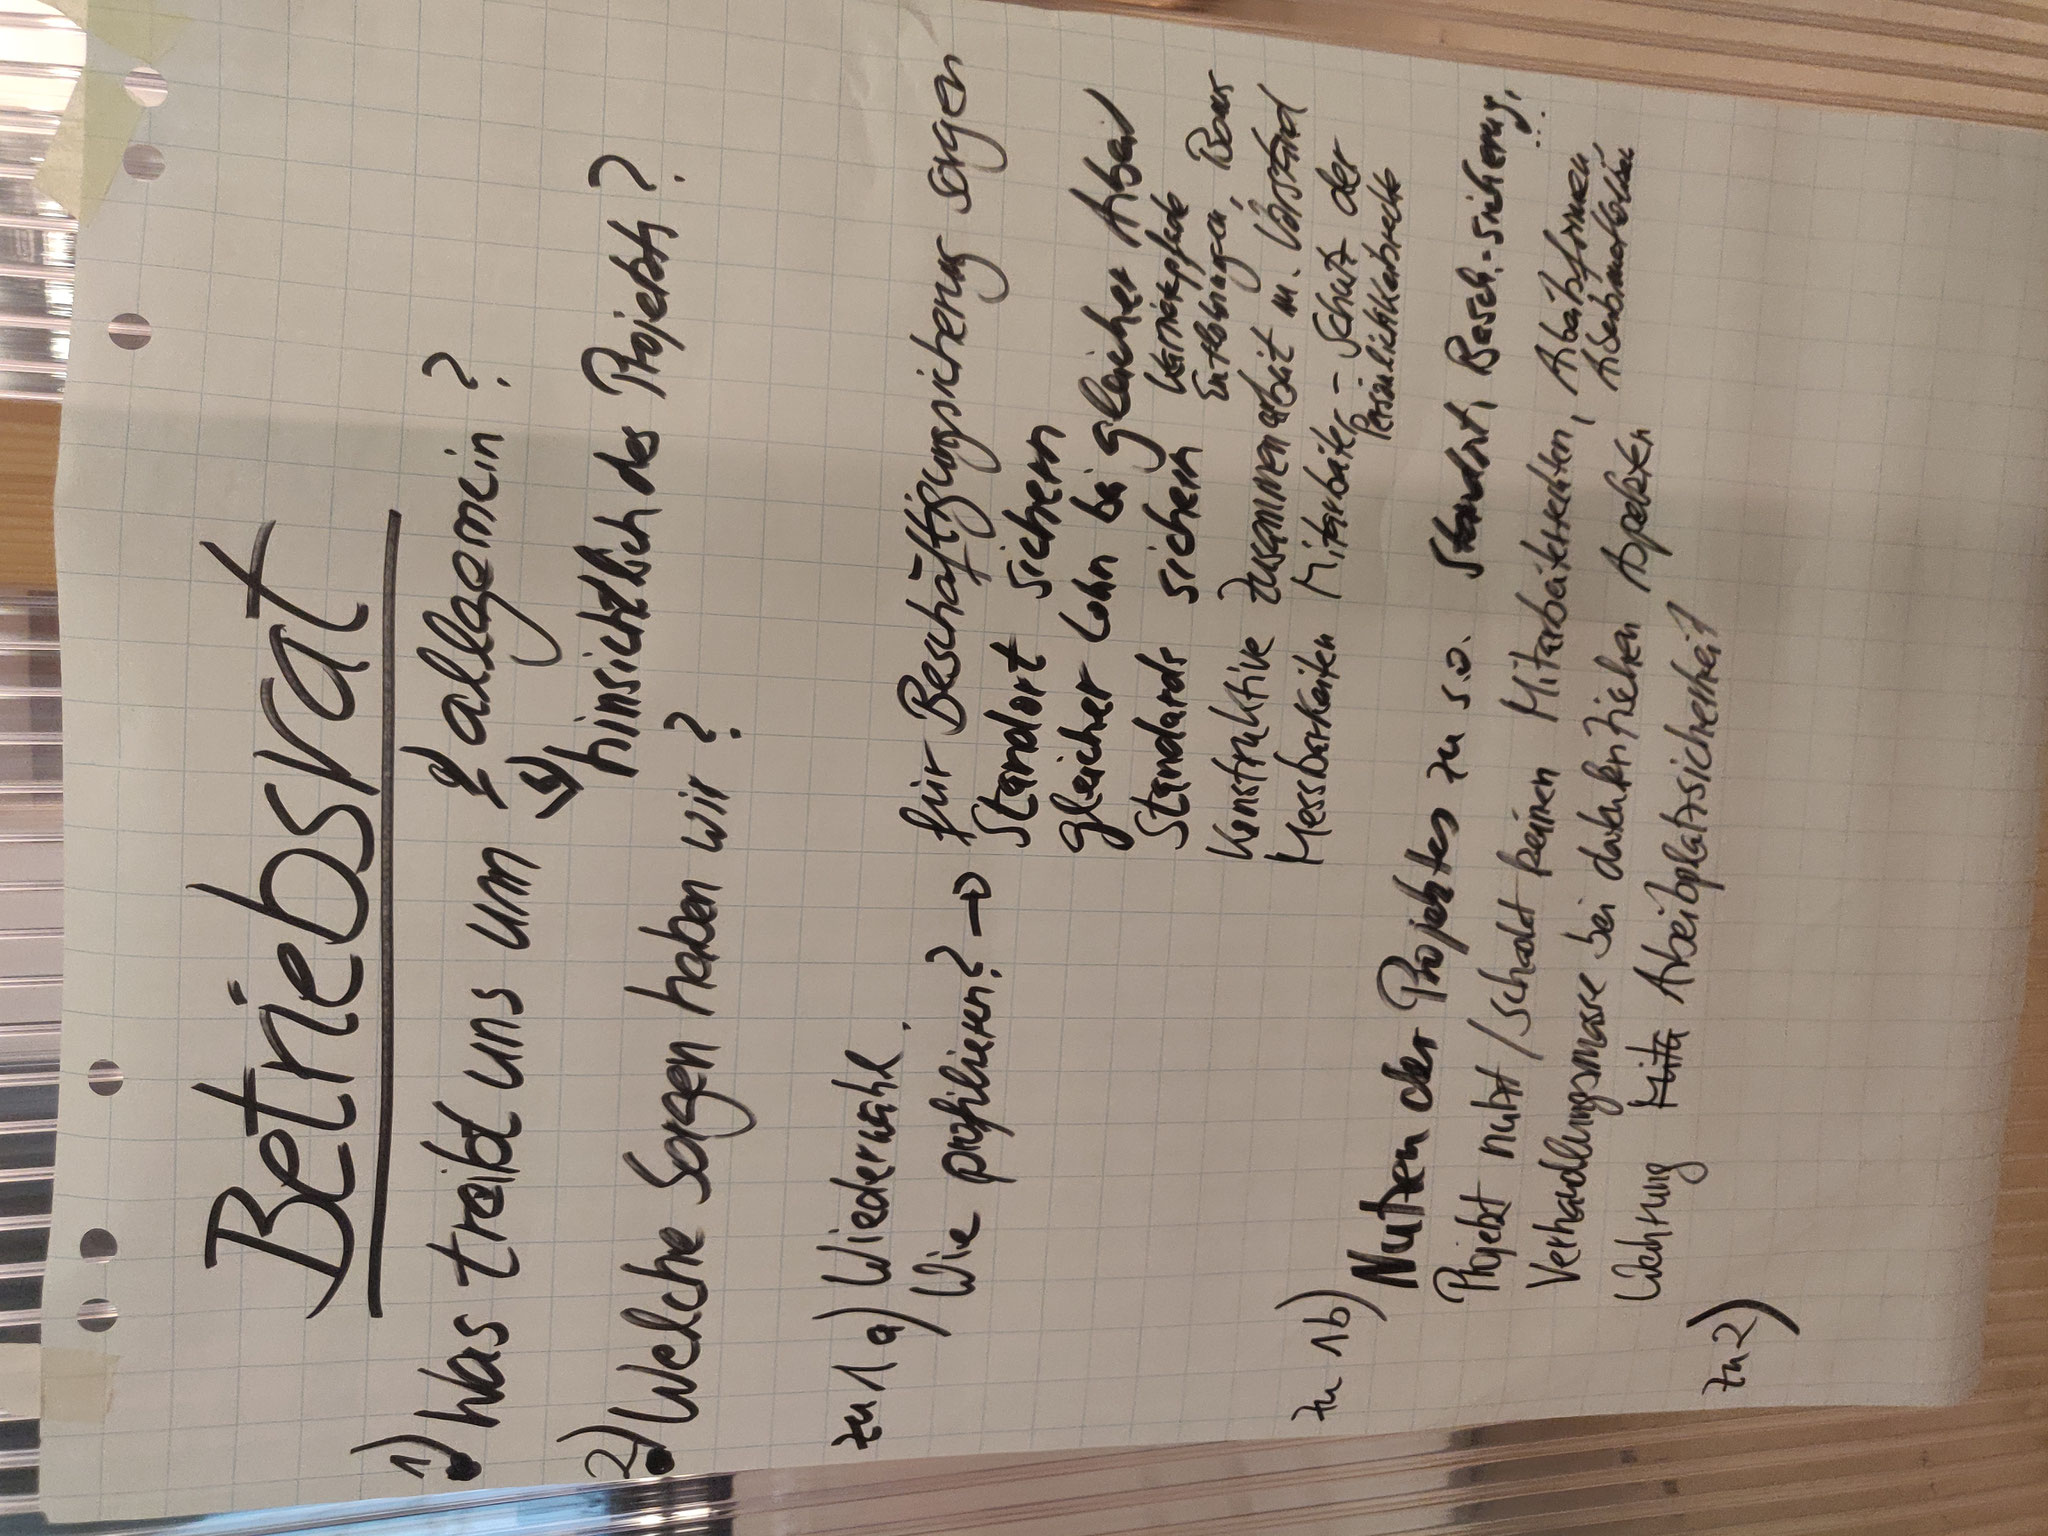 Betriebsrat
1) Was treibt uns um a) allgemein?
b) hinsichtlich des Projekts?
2) Welche Sorgen haben wir?
zu 1a) Wiederwahl.
Wie profilieren? → für Beschäftigungssicherung sorgen
Standort sichern
gleicher Lohn bei gleicher Arbeit
Standards sichern Karrierepfade
Entlohnungen, Boner
Konstruktive Zusammenarbeit m. Vorstand
Messbarkeiten Mitarbeiter - Schutz der
Persönlichkeitsrechte
zu 1b) Nutzen des Projektes zu s.o. Standort, Besch.-sicherung,
Projekt nutzt/schadt keinen Mitarbeiterrechten, Arbeitsformen,
Verhandlungsmasse bei Arbeitsmethoden
Wahrung Mita Arbeitsplatzsicherheit Aspekten
zu 2)